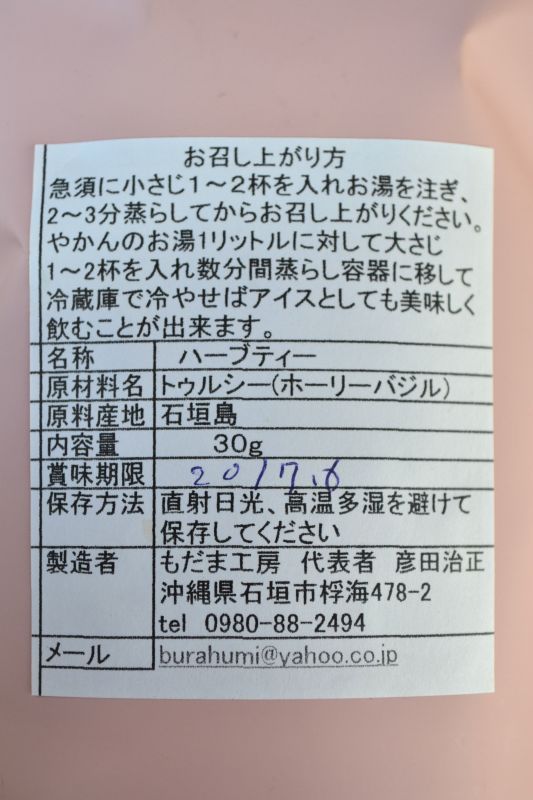 お召し上がり方
急須に小さじ1～2杯を入れお湯を注ぎ、
2～3分蒸らしてからお召し上がりください。
やかんのお湯1リットルに対して大さじ
1～2杯を入れ数分間蒸らし容器に移して
冷蔵庫で冷やせばアイスとしても美味しく
飲むことが出来ます。
名称 ハーブティー
原材料名 トゥルシー(ホーリーバジル)
原料産地 石垣島
内容量 30g
賞味期限 2017.6
保存方法 直射日光、高温多湿を避けて
保存してください
製造者 もだま工房 代表者 彦田治正
沖縄県石垣市桴海478-2
tel 0980-88-2494
メール burahumi@yahoo.co.jp